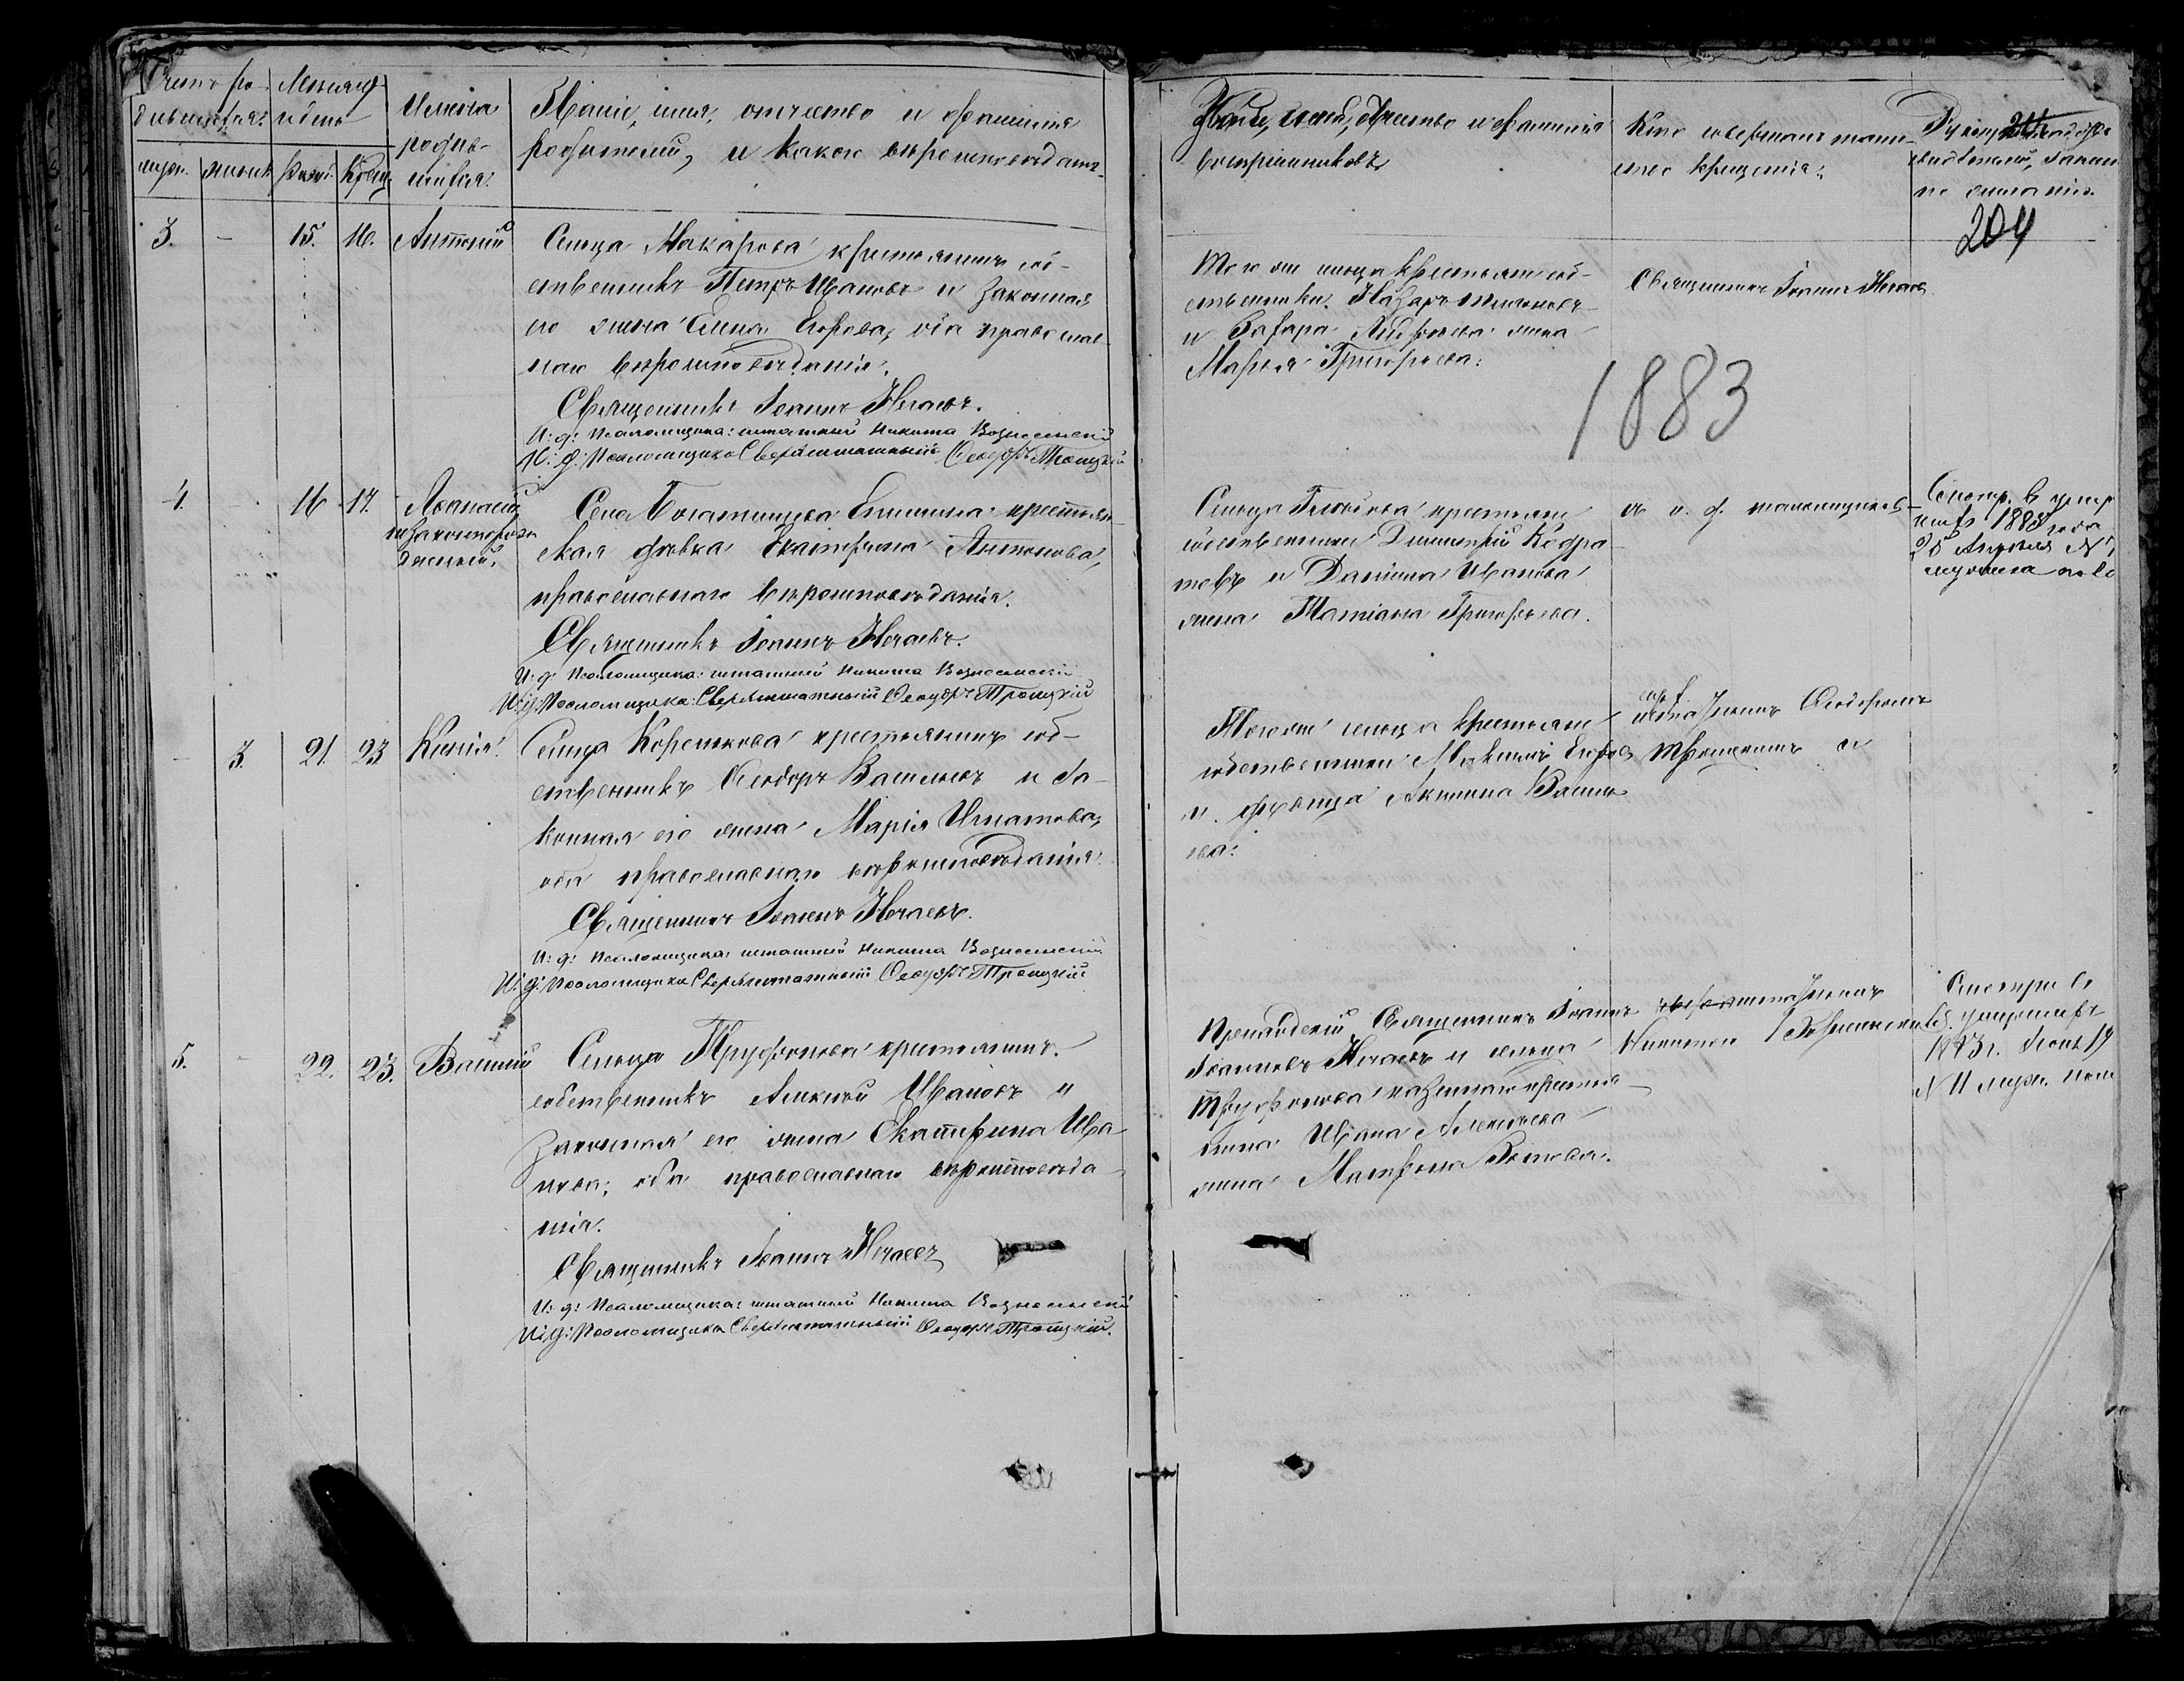 Счетъ ро-
дившихся.
Месяцъ
и день
Имена
родив-
шихся.
Званіе, имя, отчество и фамилія
родителей, и какого вероисповеданія.
муж. женск. рожд. крещ.
Званіе, имя, отчество и фамилія
воспріемниковъ
Кто совершалъ таин-
ство крещенія.
204
3. - 15. 16. Антоній
Сельца Макарова крестьянинъ соб-
ственникъ Петръ Ивановъ и законная
его жена Елена Егорова, оба православ-
наго вероисповеданія.
Священникъ Іоаннъ Нечаевъ.
И: д: Псаломщика: штатный Никита Вознесенскій
И: д: Псаломщика Сверхштатный Ѳеодоръ Троицкій
Того же сельца крестьяне соб-
ственники Назаръ
и Захара Андреева жена
Марья Григорьева.
Священникъ Іоаннъ Нечаевъ
1883
4. - 16 17. Аѳанасій
незаконнорож-
денный.
Села Богатищева Епишина крестьян-
ская девка Екатерина Антонова,
православнаго вероисповеданія.
Священникъ Іоаннъ Нечаевъ.
И: д: Псаломщика: штатный Никита Вознесенскій
И: д: Псаломщика: Сверхштатный Ѳеодоръ Троицкій
Сельца крестьяне
собственники Димитрій Кодра-
товъ и Даніила Иванова
жена Татіана Григорьева.
съ и. д. псаломщиковъ
Смотр. въ умер
шихъ 1883 года
25 Апреля №
мужеска пола
- 3. 21. 23 Ксенія
Сельца Коренькова крестьянинъ соб-
ственникъ Ѳеодоръ Васильевъ и за-
конная его жена Марія Игнатова,
оба православнаго вероисповеданія.
Священникъ Іоаннъ Нечаевъ.
И: д: Псаломщика: штатный Никита Вознесенскій
И: д: Псаломщика Сверхштатный Ѳеодоръ Троицкій
Того же сельца крестьяне
собственники Максимъ Егоровъ
и девица Акилина Василь-
ева.
Ѳеодоромъ
Троицкимъ и
5. - 22. 23. Василій
Сельца Труфонова крестьянинъ
собственникъ Алексей Ивановъ и
законная его жена Екатерина Ива-
нова; оба православнаго вероисповеда-
нія.
Священникъ Іоаннъ Нечаевъ
И: д: Псаломщика: штатный Никита Вознесенскій
И: д: Псаломщика Сверхштатный Ѳеодоръ Троицкій.
Священникъ Іоаннъ
Іоанновъ Нечаевъ и сельца
Труфонова крестья-
нина Ивана Алексеева
жена Матрона
Никитою Вознесенскимъ
Смотри въ
умершихъ
1883 г. Іюня 19
№ 11 муж. пола